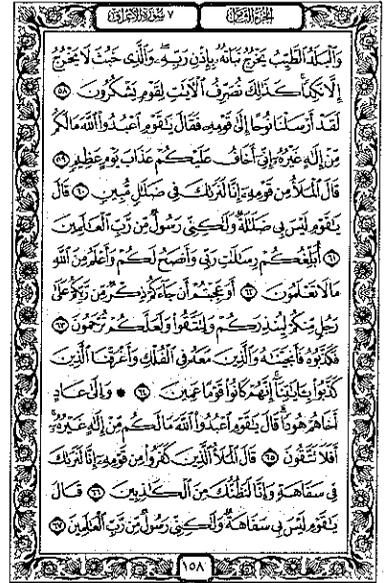 الجزء الثامن ٧ سورة الأعراف
وَٱلْبَلَدُ ٱلطَّيِّبُ يَخْرُجُ نَبَاتُهُۥ بِإِذْنِ رَبِّهِۦ وَٱلَّذِى خَبُثَ لَا يَخْرُجُ
إِلَّا نَكِدًا كَذَٰلِكَ نُصَرِّفُ ٱلْـَٔايَٰتِ لِقَوْمٍ يَشْكُرُونَ ٥٨
لَقَدْ أَرْسَلْنَا نُوحًا إِلَىٰ قَوْمِهِۦ فَقَالَ يَٰقَوْمِ ٱعْبُدُوا۟ ٱللَّهَ مَا لَكُم
مِّنْ إِلَٰهٍ غَيْرُهُۥٓ إِنِّىٓ أَخَافُ عَلَيْكُمْ عَذَابَ يَوْمٍ عَظِيمٍ ٥٩
قَالَ ٱلْمَلَأُ مِن قَوْمِهِۦٓ إِنَّا لَنَرَىٰكَ فِى ضَلَٰلٍ مُّبِينٍ ٦٠ قَالَ
يَٰقَوْمِ لَيْسَ بِى ضَلَٰلَةٌ وَلَٰكِنِّى رَسُولٌ مِّن رَّبِّ ٱلْعَٰلَمِينَ
٦١ أُبَلِّغُكُمْ رِسَٰلَٰتِ رَبِّى وَأَنصَحُ لَكُمْ وَأَعْلَمُ مِنَ ٱللَّهِ
مَا لَا تَعْلَمُونَ ٦٢ أَوَعَجِبْتُمْ أَن جَآءَكُمْ ذِكْرٌ مِّن رَّبِّكُمْ عَلَىٰ
رَجُلٍ مِّنكُمْ لِيُنذِرَكُمْ وَلِتَتَّقُوا۟ وَلَعَلَّكُمْ تُرْحَمُونَ ٦٣
فَكَذَّبُوهُ فَأَنجَيْنَٰهُ وَٱلَّذِينَ مَعَهُۥ فِى ٱلْفُلْكِ وَأَغْرَقْنَا ٱلَّذِينَ
كَذَّبُوا۟ بِـَٔايَٰتِنَآ إِنَّهُمْ كَانُوا۟ قَوْمًا عَمِينَ ٦٤ ۞ وَإِلَىٰ عَادٍ
أَخَاهُمْ هُودًا قَالَ يَٰقَوْمِ ٱعْبُدُوا۟ ٱللَّهَ مَا لَكُم مِّنْ إِلَٰهٍ غَيْرُهُۥٓ
أَفَلَا تَتَّقُونَ ٦٥ قَالَ ٱلْمَلَأُ ٱلَّذِينَ كَفَرُوا۟ مِن قَوْمِهِۦٓ إِنَّا لَنَرَىٰكَ
فِى سَفَاهَةٍ وَإِنَّا لَنَظُنُّكَ مِنَ ٱلْكَٰذِبِينَ ٦٦ قَالَ
يَٰقَوْمِ لَيْسَ بِى سَفَاهَةٌ وَلَٰكِنِّى رَسُولٌ مِّن رَّبِّ ٱلْعَٰلَمِينَ ٦٧
١٥٨